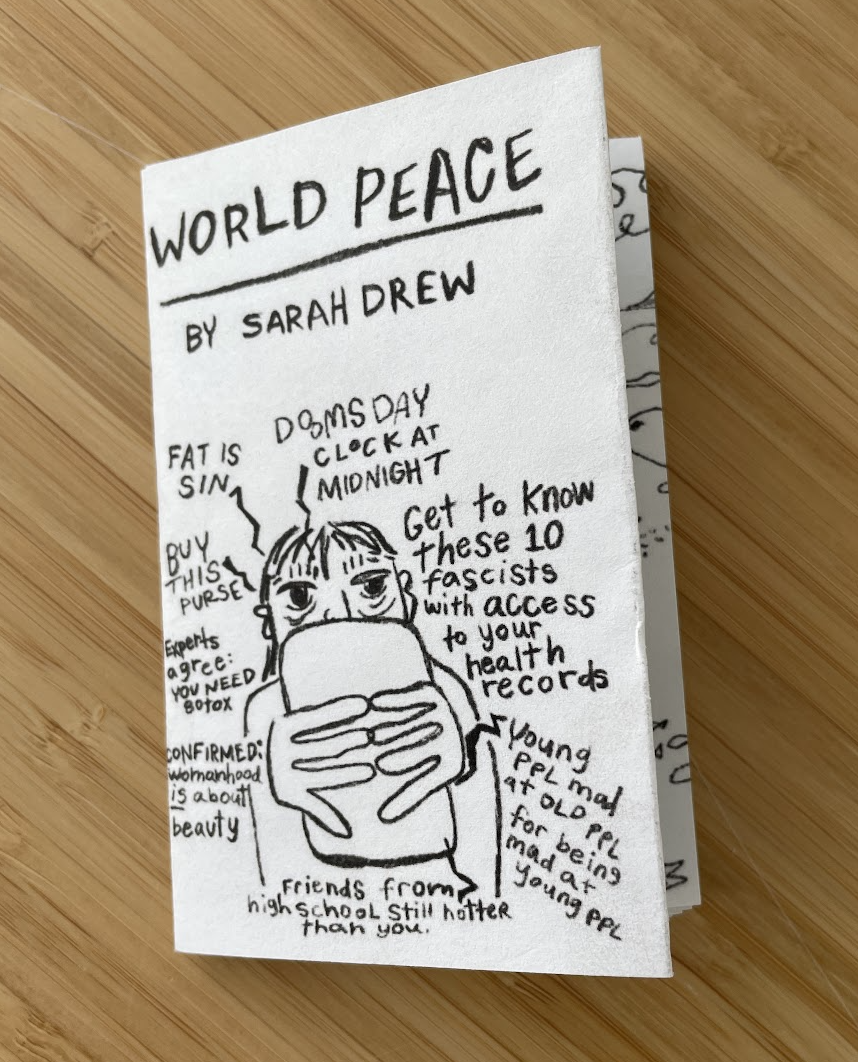 WORLD PEACE
BY SARAH DREW
DOOMSDAY
CLOCK AT
MIDNIGHT
FAT IS
SIN
BUY
THIS
PURSE
Experts
agree:
YOU NEED
BOTOX
CONFIRMED:
womanhood
is about
beauty
Get to know
these 10
fascists
with access
to your
health
records
Young
PPL mad
at OLD PPL
for being
mad at
young PPL
Friends from
high school still hotter
than you.